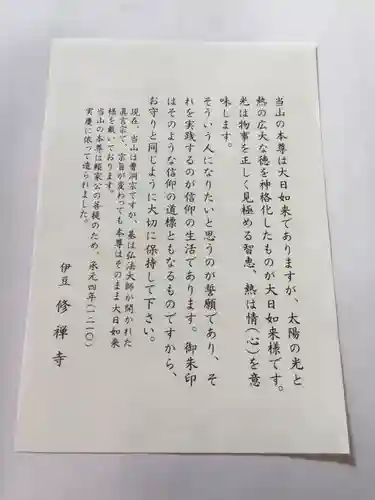 当山の本尊は大日如来でありますが、太陽の光と
熱の広大な徳を神格化したものが大日如来様です。
光は物事を正しく見極める智恵、熱は情(心)を意
味します。
そういう人になりたいと思うのが誓願であり、そ
れを実践するのが信仰の生活であります。御朱印
はそのような信仰の道標ともなるものですから、
お守りと同じように大切に保持して下さい。
現在、当山は曹洞宗ですが、基は弘法大師が開かれた
真言宗で、宗旨が変わっても本尊はそのまま大日如来
様を戴いております。
当山の本尊は頼家公の菩提のため、承元四年(一二一〇)
実慶に依って造られました。
伊豆 修禅寺